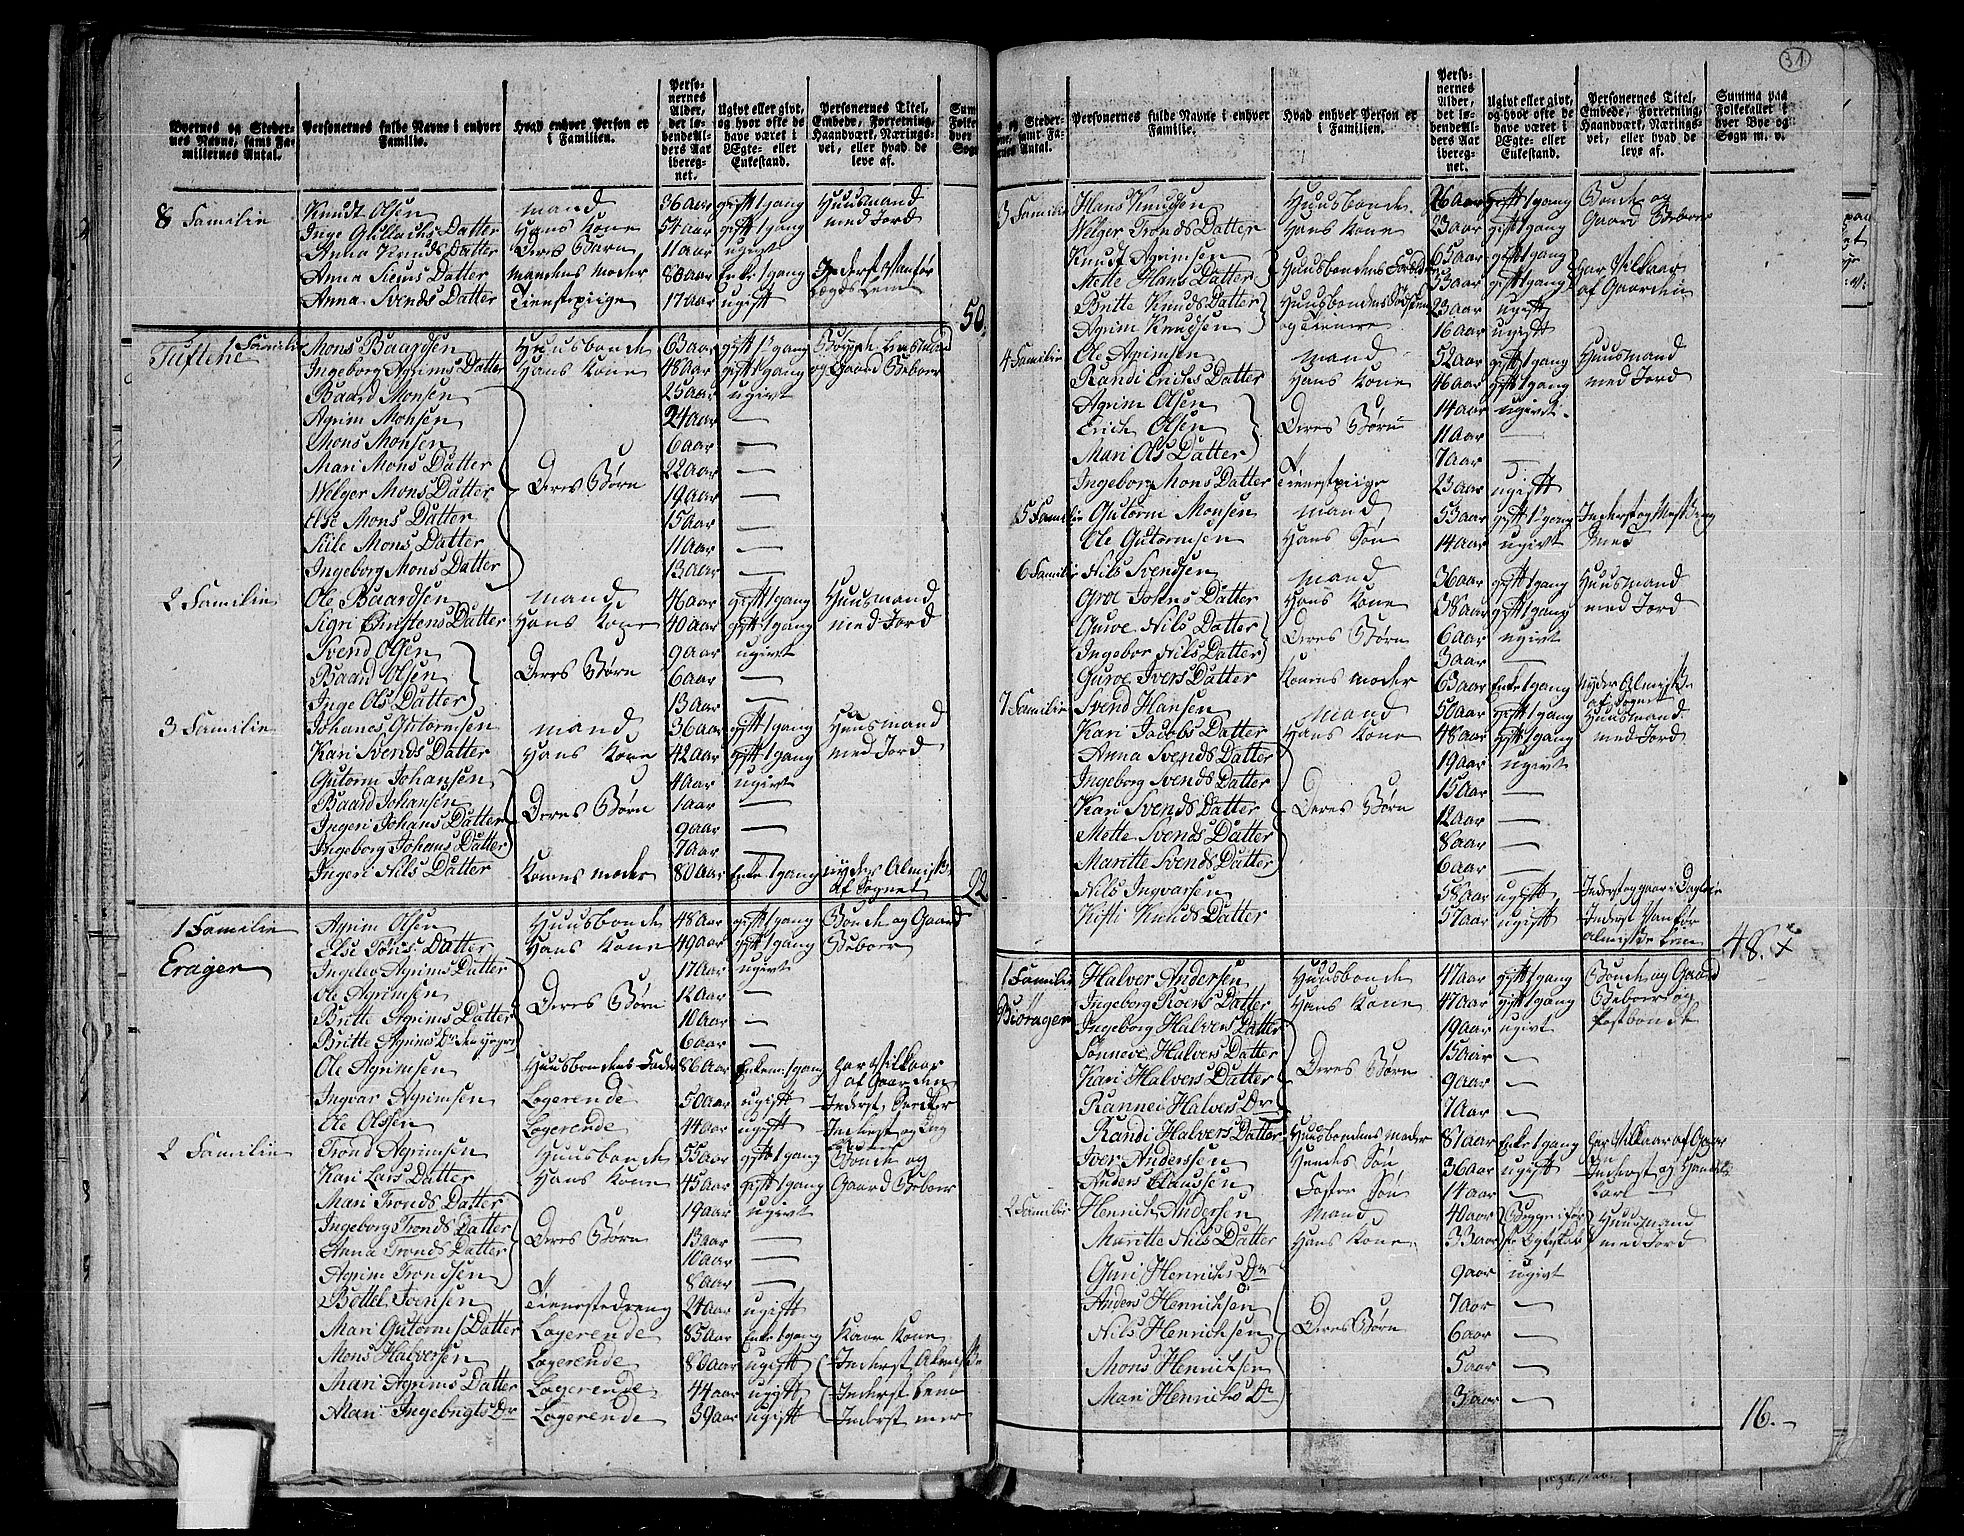 31
Byernes og Steder-
nes Navne, samt Fa-
miliernes Antal.
Personernes fulde Navne i enhver
Familie.
Hvad enhver Person er
i Familien.
Perso-
nernes
Alder,
det lø-
bende Al-
ders Aar
iberegnet.
Ugivt eller givt,
og hvor ofte de
have været i
Ægte- eller
Enkestand.
Personernes Titel,
Embede, Forretning,
Haandværk, Nærings-
vei, eller hvad de
leve af.
8 Familie Knudt Olsen mand 36 aar gift 1 gang Huusmand
Inge Datter Hans Kone 54 aar gift 1 gang med Jord
Anna Knuds Datter Deres Barn 11 aar ugivt
Anna Datter mandens moder 80 aar Enke 1 gang Inderst Vanfør
Anna Svends Datter Tienestpiige 17 aar ugift Lægds Lem
50.
Tuftene 1 Familie Mons Baardsen Huusbonde 63 aar gift gang Lensmand
Ingeborg Agrims Datter Hans Kone 48 aar gift 1 gang og Gaard Beboer
Baard Monsen 25 aar ugivt
Agrim Monsen 24 aar —
Mons Monsen 6 aar —
Mari Mons Datter 22 aar —
Welger Mons Datter Deres Børn 19 aar —
Else Mons Datter 15 aar —
Siile Mons Datter 11 aar —
Ingeborg Mons Datter 13 aar —
2 Familie Ole Baardsen mand 46 aar gift 1 gang Huusmand
Sigri Christens Datter Hans Kone 40 aar gift 1 gang med Jord
Svend Olsen 9 aar ugivt
Baard Olsen Deres Børn 6 aar —
Inge Ols Datter 13 aar —
3 Familie Johanes Gutormsen mand 36 aar gift 1 gang Huusmand
Kari Svends Datter Hans Kone 42 aar gift 1 gang med Jord
Gutorm Johansen 4 aar ugivt
Baard Johansen Deres Børn 1 aar —
Ingeri Johans Datter 9 aar —
Ingeborg Johans Datter 7 aar —
Ingeri Nils Datter Konens moder 80 aar Enke 1 gang nyder Almisse
af Sognet
22
1 Familie Agrim Olsen Huusbonde 48 aar gift 1 gang Bonde og Gaard
Else Datter Hans Kone 49 aar gift 1 gang Beboer
Erager Ingelev Agrims Datter 17 aar ugivt
Ole Agrimsen Deres Børn 12 aar —
Britte Agrims Datter 10 aar —
Britte Agrims Dr. den yngre 6 aar —
Ole Agrimsen Huusbondens Fader 86 aar Enkem. 1 gang har Vilkaar
af Gaarden
Ingvar Agrimsen Logerende 50 aar ugift Inderst,
Ole Olsen Logerende 44 aar ugift Inderst og Dag
2 Familie Trond Agrimsen Huusbonde 55 aar gift 1 gang Bonde og
Kari Lars Datter Hans Kone 45 aar gift 1 gang Gaard Beboer
Mari Tronds Datter 19 aar ugivt
Ingeborg Tronds Datter Deres Børn 13 aar —
Anna Tronds Datter 10 aar —
Agrim Trondsen 8 aar —
Bottel Ivensen Tienestedreng 24 aar ugift
Mari Gutorms Datter Logerende 85 aar Enke 1 gang Kaar Kone
Mons Halversen Logerende 80 aar ugift Inderst Almisse
Mari Agrims Datter Logerende 44 aar ugift Inderst
Mari Ingebrigts Dr Logerende 39 aar ugift Inderst
Personernes fulde Navne i enhver
Familie.
Hvad enhver Person er
i Familien.
Perso-
nernes
Alder,
det lø-
bende Al-
ders Aar
iberegnet.
Ugivt eller givt,
og hvor ofte de
have været i
Ægte- eller
Enkestand.
Personernes Titel,
Embede, Forretning,
Haandværk, Nærings-
vei, eller hvad de
leve af.
Summa paa
Folketallet i
hver Bye og
Sogn m. v.
3 Familie Hans Knudsen Huusbonde 26 aar gift 1 gang Bonde og
Welger Tronds Datter Hans Kone 23 aar gift 1 gang Gaard Beboer
Knudt Agrimsen 65 aar gift 1 gang
Mette Hans Datter Huusbondens Forældre 53 aar gift 1 gang har Vilkaar
Britte Knuds Datter Huusbondens Sødsken 23 aar ugift af Gaarden
Agrim Knudsen og Tienere 16 aar ugift
4 Familie Ole Agrimsen mand 52 aar gift 1 gang Huusmand
Randi Erichs Datter Hans Kone 46 aar gift 1 gang med Jord
Agrim Olsen 14 aar ugivt
Erich Olsen Deres Børn 11 aar —
Mari Ols Datter 7 aar —
Ingeborg Mons Datter Tienestpiige 23 aar ugift
5 Familie Gutorm Monsen mand 53 aar gift gang Inderst og
Ole Gutormsen Hans Søn 14 aar ugivt
6 Familie Nils Svendsen mand 36 aar gift 1 gang Huusmand
Groe Johns Datter Hans Kone 38 aar gift 1 gang med Jord
Guroe Nils Datter Deres Børn 6 aar ugivt
Ingebor Nils Datter 3 aar —
Guroe Ivers Datter Konens moder 63 aar Enke 1 gang nyder Almisse
af Sognet
7 Familie Svend Hansen Mand 50 aar gift 1 gang Huusmand
Kari Jacobs Datter Hans Kone 48 aar gift 1 gang med Jord
Anna Svends Datter 19 aar ugivt
Ingeborg Svends Datter 15 aar —
Kari Svends Datter Deres Børn 12 aar —
Mette Svends Datter 8 aar —
Maritte Svends Datter 6 aar —
Nils Ingvarsen 58 aar ugift Inderst og gaar i Dagleie
Kisti Knuds Datter 57 aar ugift Inderst Vanfør
Almisse Lem
48. x
1 Familie Halver Andersen Huusbonde 47 aar gift 1 gang Bonde og Gaard
Ingeborg Roens Datter Hans Kone 47 aar gift 1 gang Beboer og
Biørager Ingeborg Halvers Datter 19 aar ugivt Postbonde
Sønneve Halvers Datter 15 aar —
Kari Halvers Datter Deres Børn 9 aar —
Rannei Halvers Dr 7 aar —
Randi Halvers Datter Huusbondens moder 87 aar Enke 1 gang har Vilkaar af Gaar
den
Iver Anderssen Hendes Søn 36 aar ugift Inderst og
Anders Claussen Foster Søn 14 aar —
2 Familie Henrich Andersen Mand 40 aar Begge i før Huusmand
Maritte Nils Datter Hans Kone 33 aar ste Egteskab med Jord
Guri Henrichs Dr 9 aar ugivt
Anders Henrichsen 7 aar —
Nils Henrichsen Deres Børn 6 aar —
Mons Henrichsen 5 aar —
Mari Henrichs Dr 3 aar —
16.